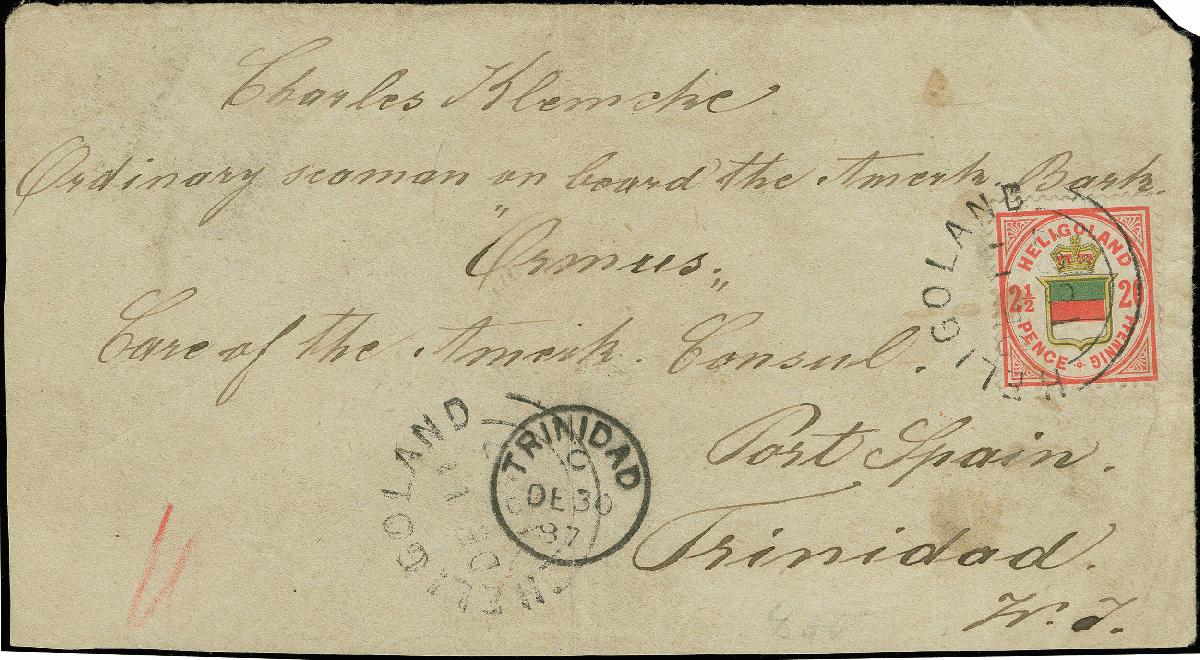 Charles Klemcke
Ordinary seaman on board the Amerk. Bark.
"Ormus„
Care of the Amerk. Consul.
Port Spain.
Trinidad.
W. I.
HELIGOLAND
HELIGOLAND
2½ 20
PENCE PFENNIG
HELIGOLAND
TRINIDAD
C
DE 30
87